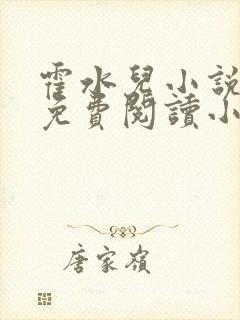 霍水兒小說
免費閱讀小
唐家嶺